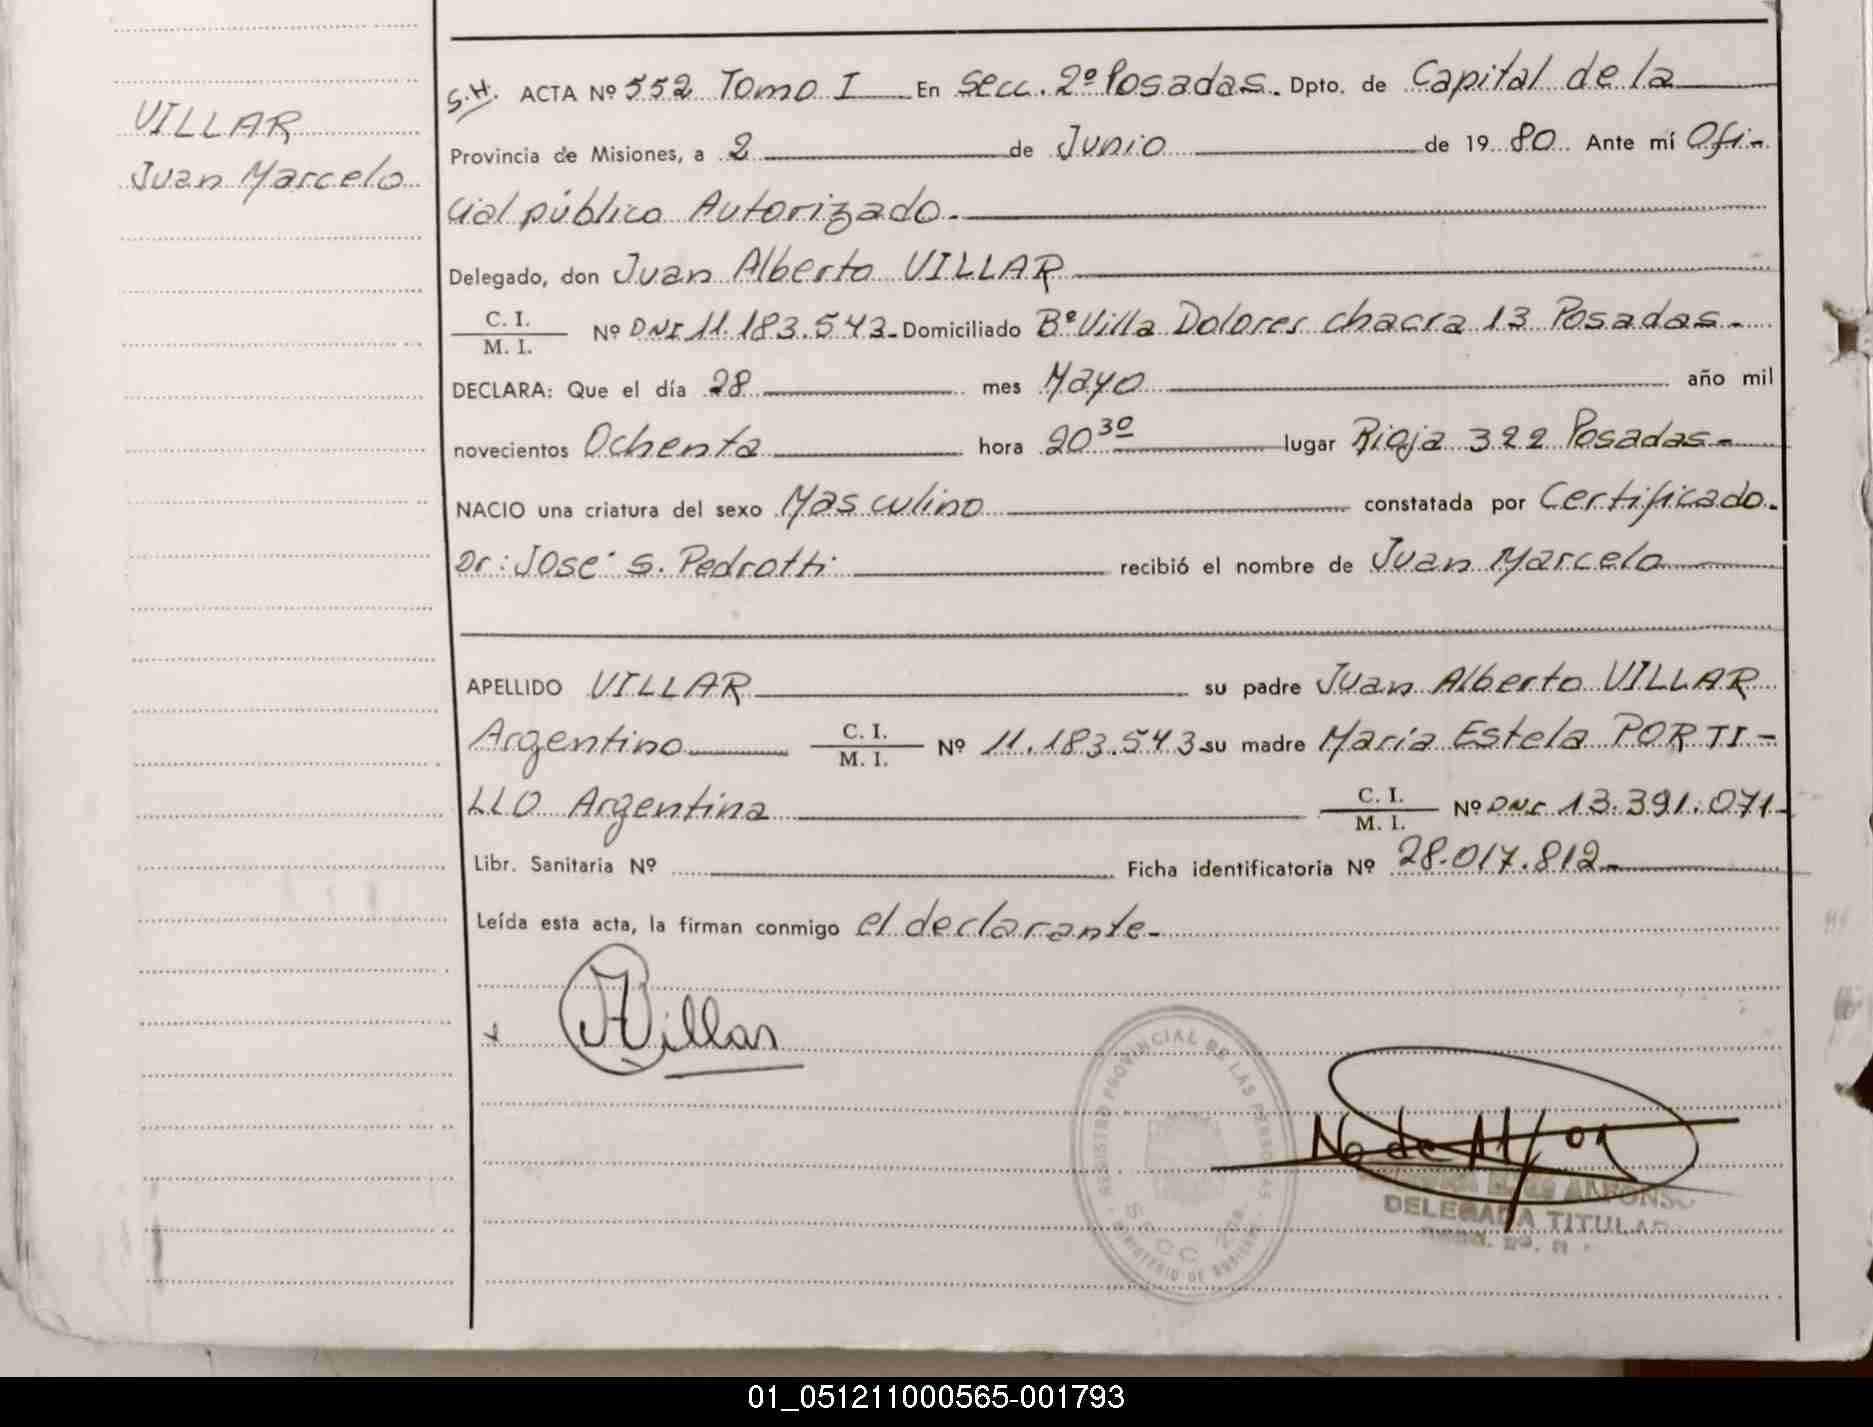 VILLAR
Juan Marcelo
S.H. ACTA Nº 552 Tomo I En Secc. 2º Posadas. Dpto. de Capital de la
Provincia de Misiones, a 2 de Junio de 19 80 Ante mí Ofi-
cial público Autorizado.-
Delegado, don Juan Alberto VILLAR
C. I. / M. I. Nº DNI 11.183.543- Domiciliado Bº Villa Dolores chacra 13 Posadas.-
DECLARA: Que el día 28 mes Mayo año mil
novecientos Ochenta hora 20 30 lugar Rioja 322 Posadas-
NACIO una criatura del sexo Masculino constatada por Certificado.
Dr: José S. Pedrotti recibió el nombre de Juan Marcelo
APELLIDO VILLAR su padre Juan Alberto VILLAR
Argentino C. I. / M. I. Nº 11.183.543 su madre María Estela PORTI-
LLO Argentina C. I. / M. I. Nº DNI 13.391.071-
Libr. Sanitaria Nº Ficha identificatoria Nº 28.017.812-
Leída esta acta, la firman conmigo el declarante-
Villar
REGISTRO PROVINCIAL DE LAS PERSONAS
SECC 2da
MINISTERIO DE GOBIERNO
ALFONSO
DELEGADA TITULAR
01_051211000565-001793